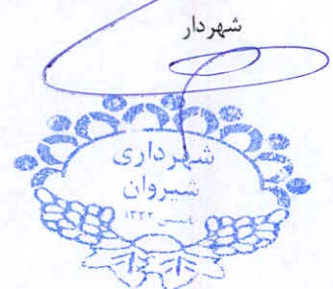 شهردار
شهرداری
شیروان
تاسیس ۱۳۲۲